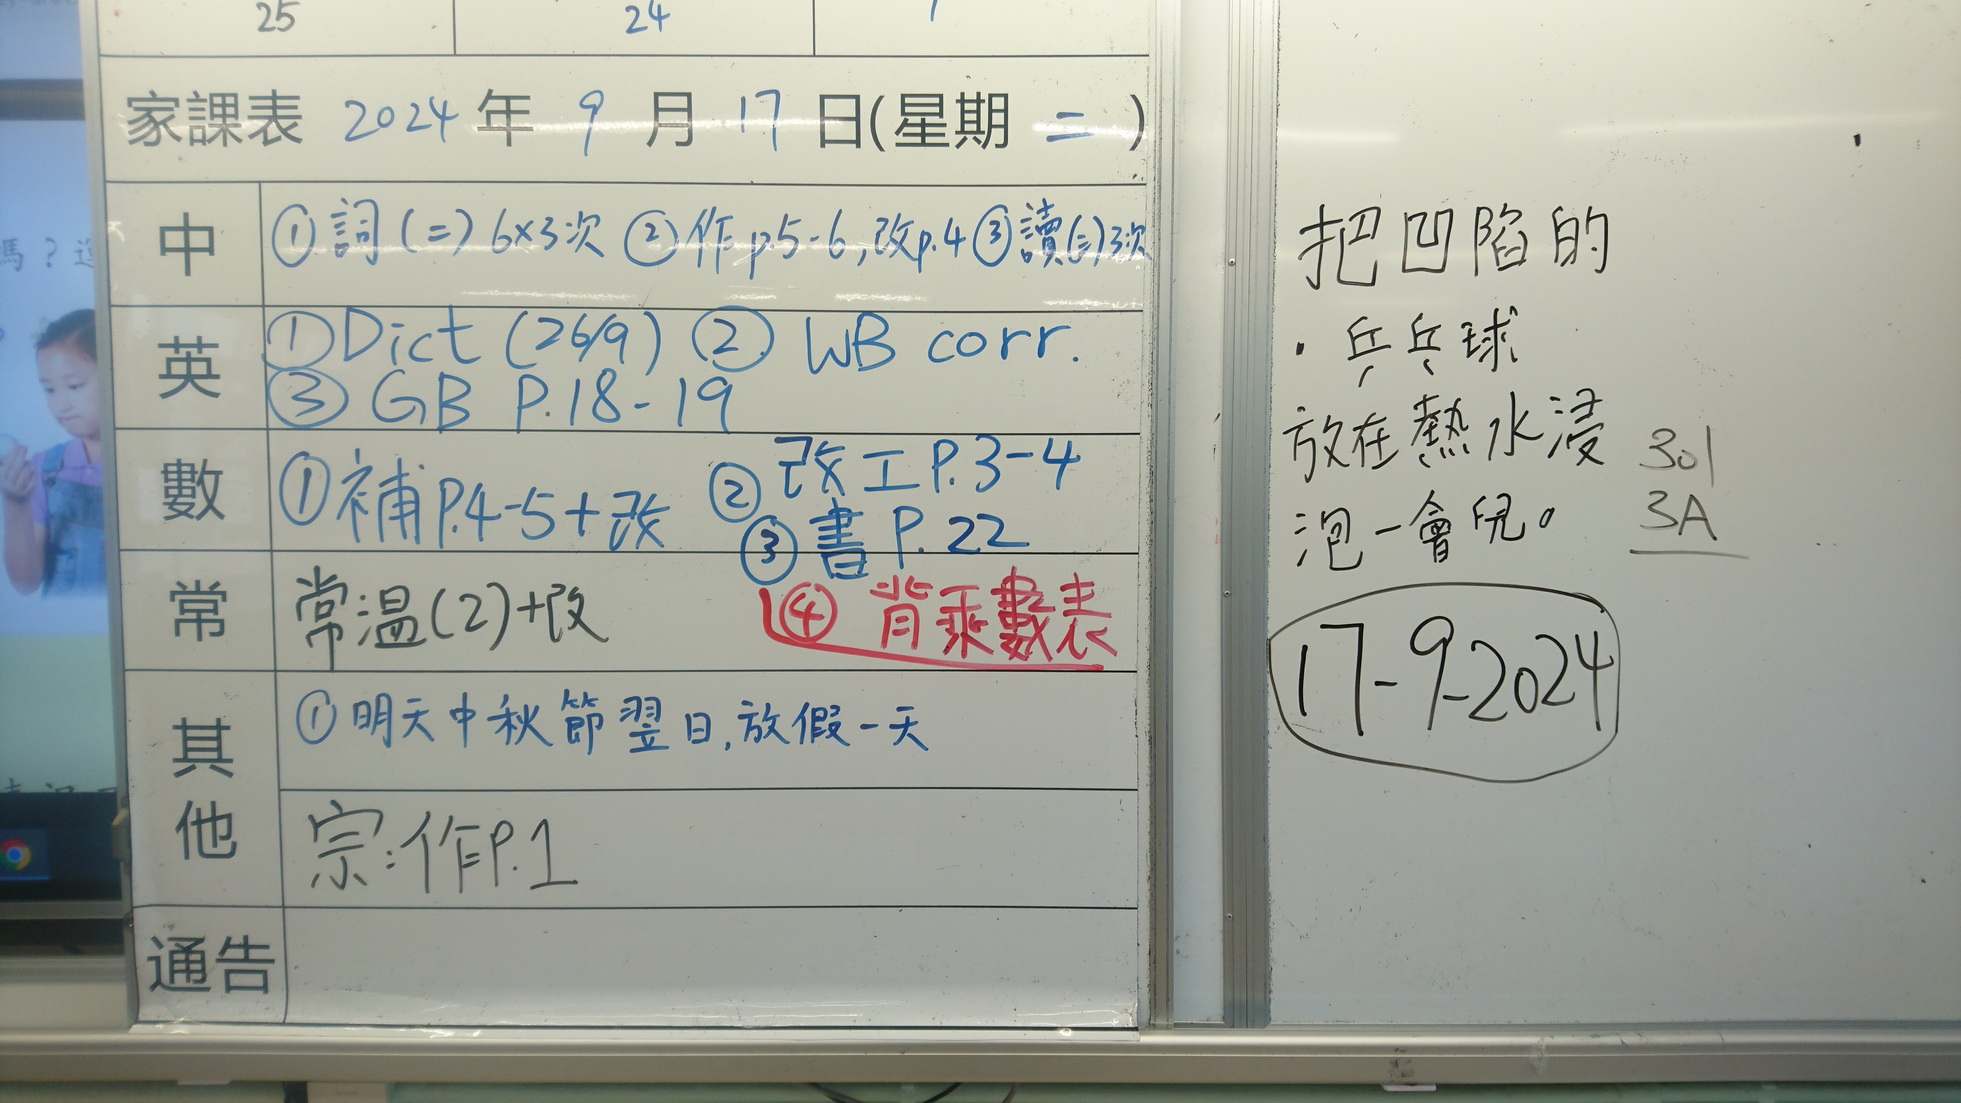 25 24
家課表 2024 年 9 月 17 日(星期 二 )
中 ①詞(二) 6x3次 ②作p5-6,改p.4 ③讀(三)3次
英 ①Dict (26/9) ② WB corr.
③ GB P.18-19
數 ①補P.4-5+改 ② 改工P.3-4
③ 書 P. 22
常 常溫(2)+改 ④ 背乘數表
其他 ①明天中秋節翌日,放假一天
宗:作P.1
通告
把凹陷的
·乒乓球
放在熱水浸
泡一會兒。
301
3A
17-9-2024
嗎?